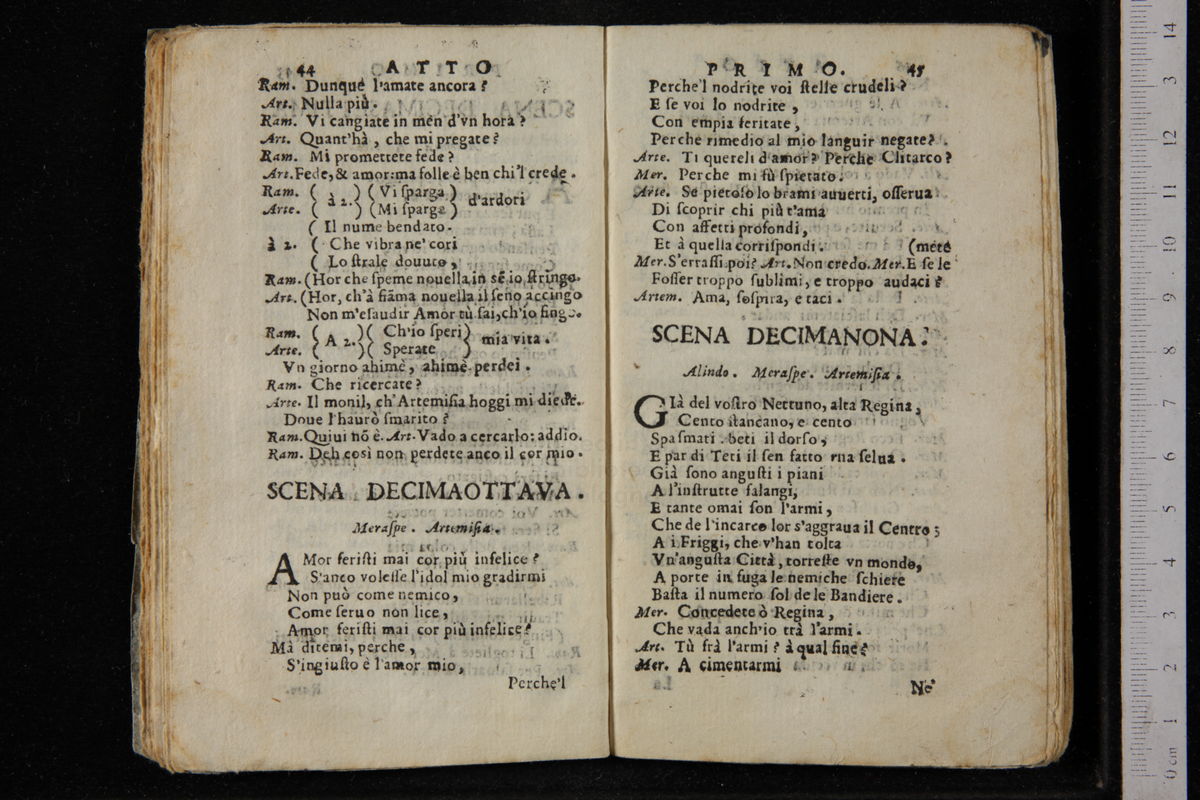 44 ATTO
Ram. Dunque l'amate ancora?
Art. Nulla più.
Ram. Vi cangiate in men d'vn hora?
Art. Quant'hà, che mi pregate?
Ram. Mi promettete fede?
Art. Fede, & amor: ma folle è ben chi'l crede.
Ram. ( à 2. ) ( Vi ſparga ) d'ardori
Arte. ( ) ( Mi ſparga )
( Il nume bendato.
à 2. ( Che vibra ne' cori
( Lo ſtrale douuto,
Ram. (Hor che ſpeme nouella in sé io ſtringo.
Art. (Hor, ch'à fiãma nouella il ſeno accingo
Non m'eſaudir Amor tù ſai, ch'io fingo.
Ram. ( A 2. ) ( Ch'io ſperi ) mia vita.
Arte. ( ) ( Sperate )
Vn giorno ahimè, ahimè perdei.
Ram. Che ricercate?
Arte. Il monil, ch'Artemiſia hoggi mi diede.
Doue l'haurò ſmarito?
Ram. Quiui nõ è. Art. Vado a cercarlo: addio.
Ram. Deh così non perdete anco il cor mio.
SCENA DECIMAOTTAVA.
Meraſpe. Artemiſia.
AMor feriſti mai cor più infelice?
S'anco voleſſe l'idol mio gradirmi
Non può come nemico,
Come ſeruo non lice,
Amor feriſti mai cor più infelice?
Mà ditemi, perche,
S'ingiuſto è l'amor mio,
Perche'l
PRIMO. 45
Perche'l nodrite voi ſtelle crudeli?
E ſe voi lo nodrite,
Con empia feritate,
Perche rimedio al mio languir negate?
Arte. Ti quereli d'amor? Perche Clitarco?
Mer. Perche mi fù ſpietato.
Arte. Se pietoſo lo brami auuerti, oſſerua
Di ſcoprir chi più t'ama
Con affetti profondi,
Et à quella corriſpondi. (mete
Mer. S'erraſſi poi? Art. Non credo. Mer. E ſe le
Foſſer troppo ſublimi, e troppo audaci?
Artem. Ama, ſoſpira, e taci.
SCENA DECIMANONA.
Alindo. Meraſpe. Artemiſia.
GIà del voſtro Nettuno, alta Regina,
Cento ſtancano, e cento
Spaſmati beti il dorſo,
E par di Teti il ſen fatto vna ſelua.
Già ſono anguſti i piani
A l'inſtrutte falangi,
E tante omai ſon l'armi,
Che de l'incarco lor s'aggraua il Centro;
A i Friggi, che v'han tolta
Vn'anguſta Città, torreſte vn mondo,
A porte in fuga le nemiche ſchiere
Baſta il numero ſol de le Bandiere.
Mer. Concedete ò Regina,
Che vada anch'io trà l'armi.
Art. Tù frà l'armi? à qual fine?
Mer. A cimentarmi
Ne'